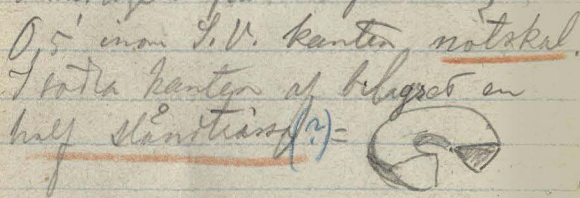 0,5 inom S.V. kanten nötskal.
I södra kanten af bilagret en
half sländtrissa (?) =